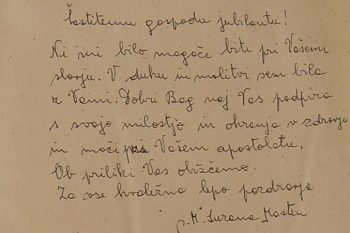 Častitemu gospodu jubilantu!
Ni mi bilo mogoče biti pri Vašem
slavju. V duhu in molitvi sem bila
z Vami. Dobri Bog naj Vas podpira
s svojo milostjo in ohranja v zdravju
in moči pri Vašem apostolatu.
Ob priliki Vas obiščemo.
Za vse hvaležna lepo pozdravlja
s. M. Suzana